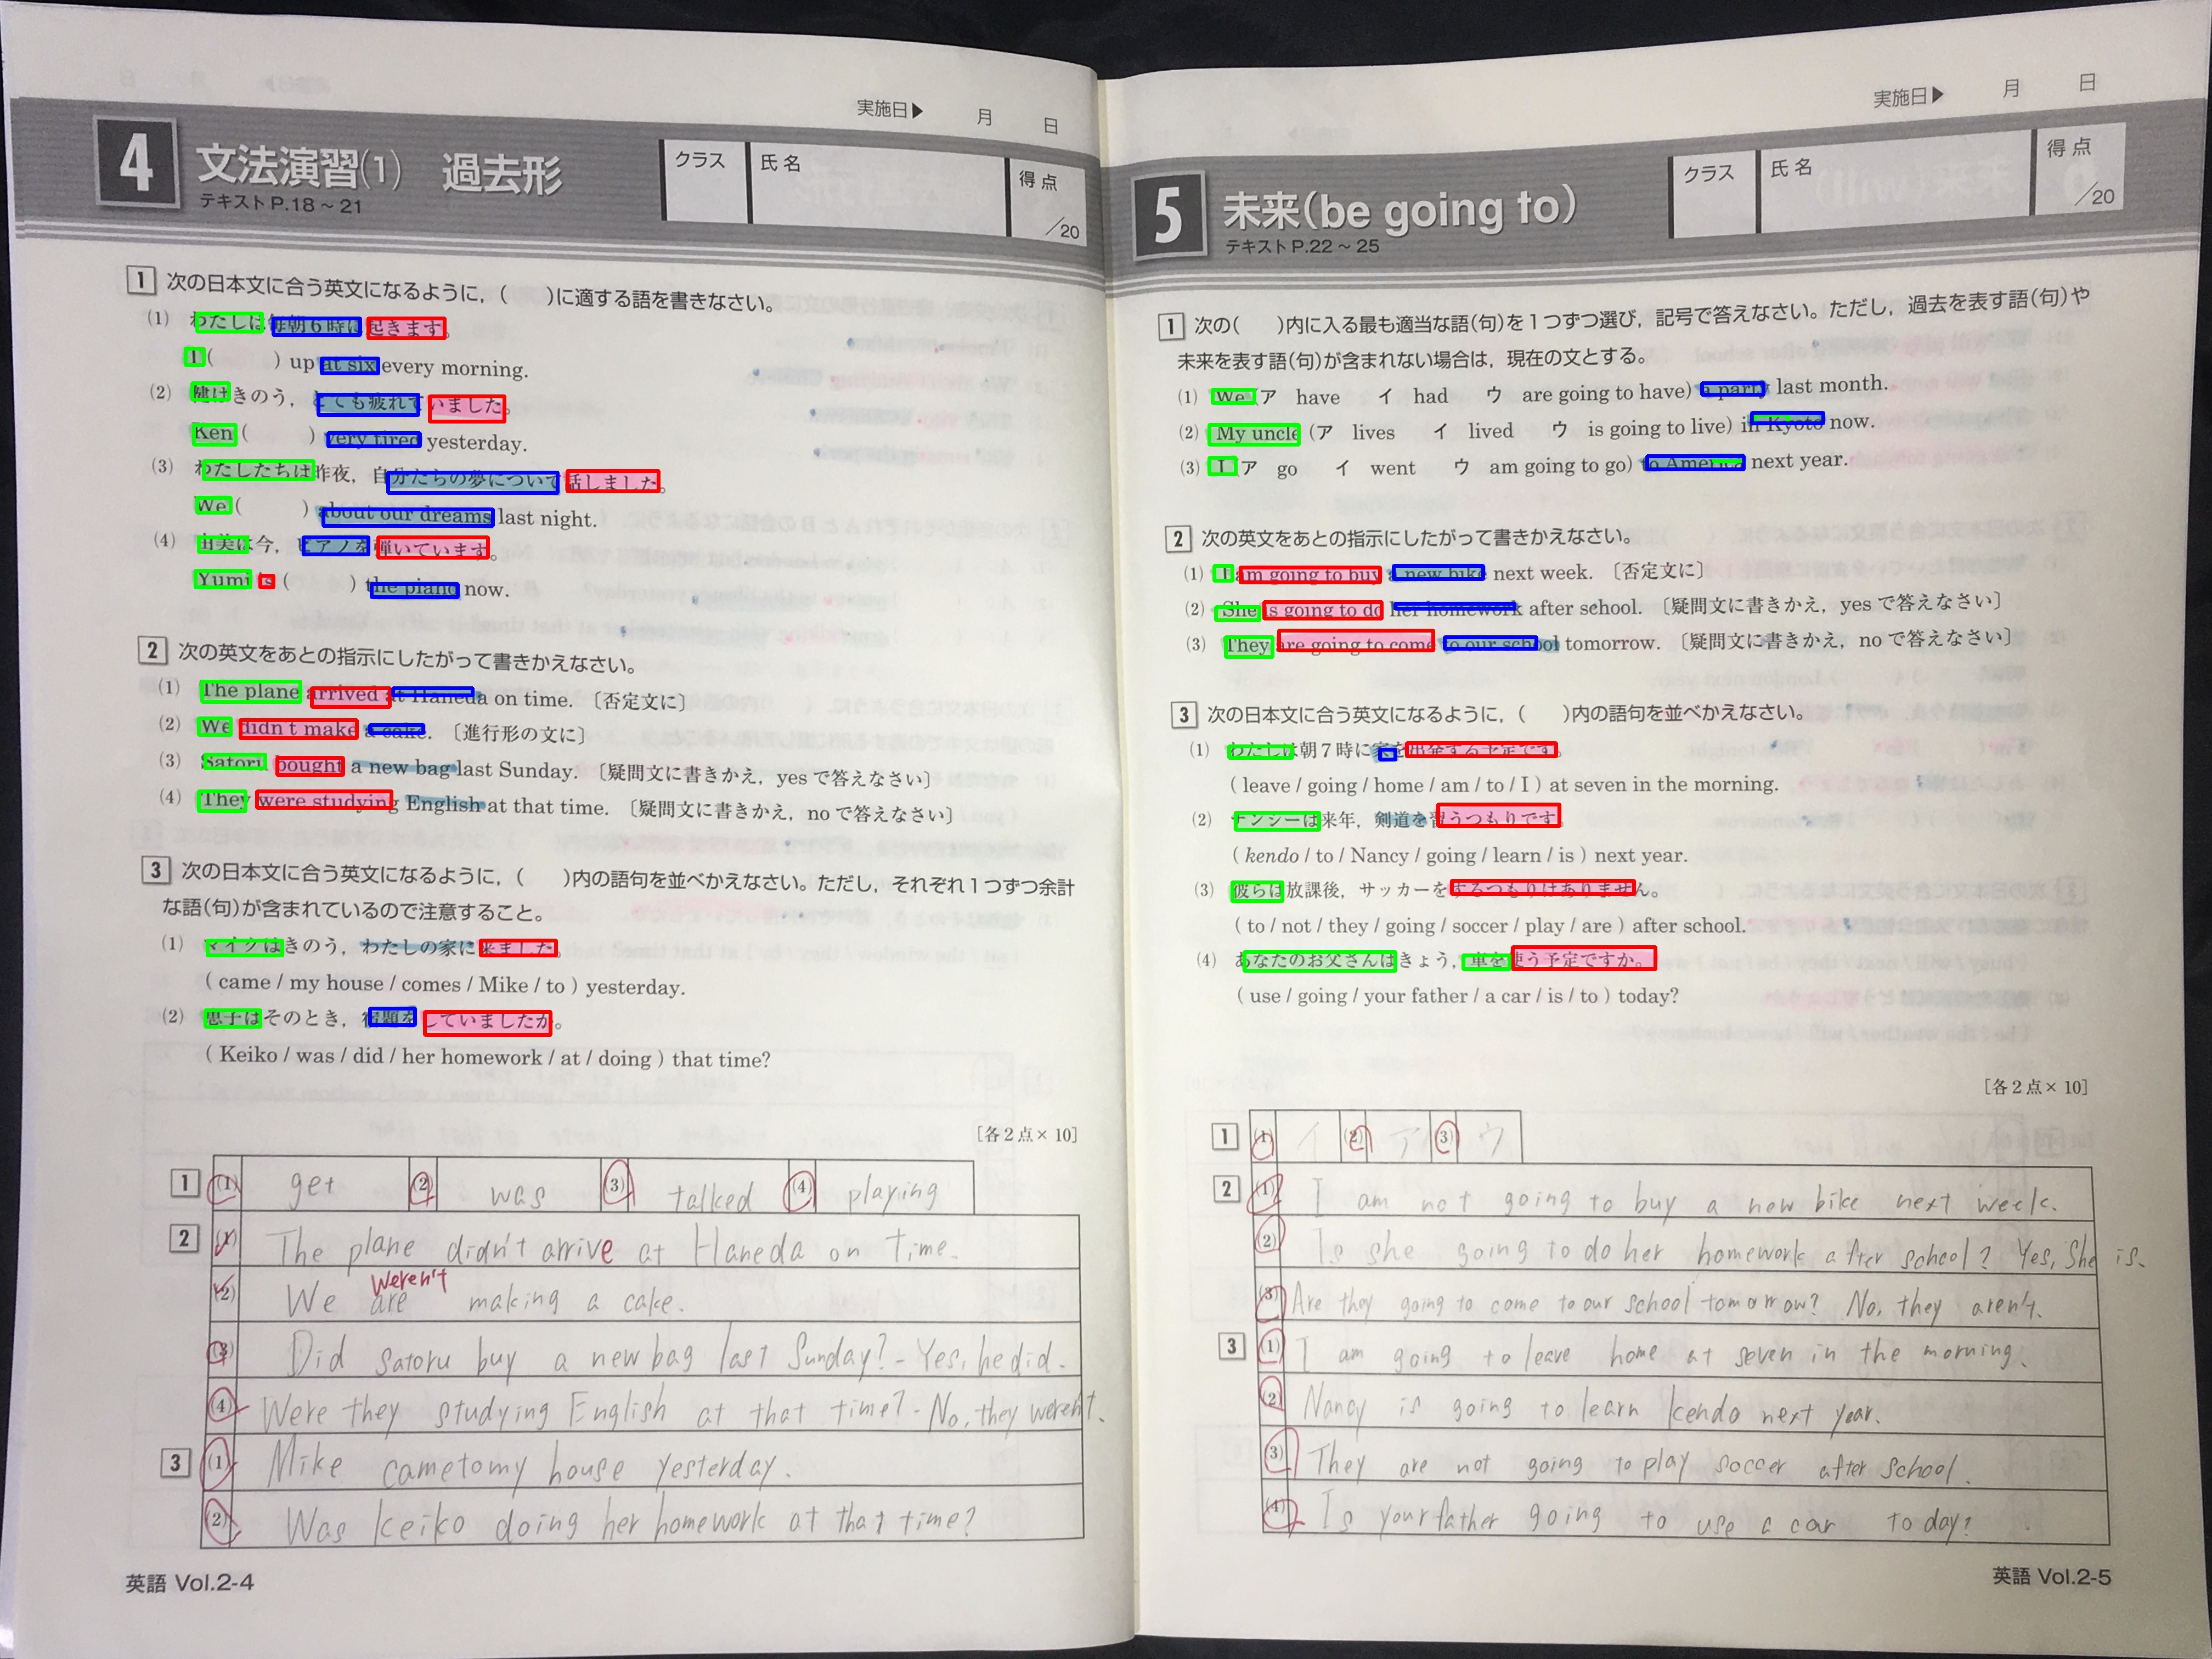 実施日▶ 月 日
4 文法演習(1) 過去形
テキストP.18～21
クラス 氏名 得点 /20
1 次の日本文に合う英文になるように，( )に適する語を書きなさい。
(1) わたしは毎朝6時に起きます。
I ( ) up at six every morning.
(2) 健はきのう，とても疲れていました。
Ken ( ) very tired yesterday.
(3) わたしたちは昨夜，自分たちの夢について話しました。
We ( ) about our dreams last night.
(4) 由美は今，ピアノを弾いています。
Yumi is ( ) the piano now.
2 次の英文をあとの指示にしたがって書きかえなさい。
(1) The plane arrived at Haneda on time. 〔否定文に〕
(2) We didn't make a cake. 〔進行形の文に〕
(3) Satoru bought a new bag last Sunday. 〔疑問文に書きかえ，yesで答えなさい〕
(4) They were studying English at that time. 〔疑問文に書きかえ，noで答えなさい〕
3 次の日本文に合う英文になるように，( )内の語句を並べかえなさい。ただし，それぞれ1つずつ余計
な語(句)が含まれているので注意すること。
(1) マイクはきのう，わたしの家に来ました。
( came / my house / comes / Mike / to ) yesterday.
(2) 恵子はそのとき，宿題をしていましたか。
( Keiko / was / did / her homework / at / doing ) that time?
［各2点×10］
1 (1) get (2) was (3) talked (4) playing
2 (1) The plane didn't arrive at Haneda on time.
weren't
(2) We are making a cake.
(3) Did Satoru buy a new bag last Sunday? - Yes, he did.
(4) Were they studying English at that time? - No, they weren't.
3 (1) Mike came to my house yesterday.
(2) Was Keiko doing her homework at that time?
英語 Vol.2-4
実施日▶ 月 日
5 未来(be going to)
テキストP.22～25
クラス 氏名 得点 /20
1 次の( )内に入る最も適当な語(句)を1つずつ選び，記号で答えなさい。ただし，過去を表す語(句)や
未来を表す語(句)が含まれない場合は，現在の文とする。
(1) We (ア have イ had ウ are going to have) a party last month.
(2) My uncle (ア lives イ lived ウ is going to live) in Kyoto now.
(3) I (ア go イ went ウ am going to go) to America next year.
2 次の英文をあとの指示にしたがって書きかえなさい。
(1) I am going to buy a new bike next week. 〔否定文に〕
(2) She is going to do her homework after school. 〔疑問文に書きかえ，yesで答えなさい〕
(3) They are going to come to our school tomorrow. 〔疑問文に書きかえ，noで答えなさい〕
3 次の日本文に合う英文になるように，( )内の語句を並べかえなさい。
(1) わたしは朝7時に家を出発する予定です。
( leave / going / home / am / to / I ) at seven in the morning.
(2) ナンシーは来年，剣道を習うつもりです。
( kendo / to / Nancy / going / learn / is ) next year.
(3) 彼らは放課後，サッカーをするつもりはありません。
( to / not / they / going / soccer / play / are ) after school.
(4) あなたのお父さんはきょう，車を使う予定ですか。
( use / going / your father / a car / is / to ) today?
［各2点×10］
1 (1) イ (2) ア (3) ウ
2 (1) I am not going to buy a new bike next week.
(2) Is she going to do her homework after school? Yes, She is.
(3) Are they going to come to our school tomorrow? No, they aren't.
3 (1) I am going to leave home at seven in the morning.
(2) Nancy is going to learn kendo next year.
(3) They are not going to play soccer after school.
(4) Is your father going to use a car today?
英語 Vol.2-5